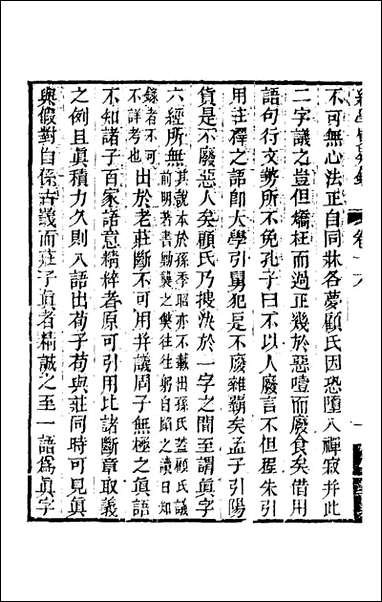 不可無心法正自同牀各夢顧氏因恐墮入禪寂并此
二字議之豈但矯枉而過正幾於惡噎而廢食矣借用
語句行文勢所不免孔子曰不以人廢言不但程朱引
用註釋之語卽大學引舅犯是不廢雜霸矣孟子引陽
貨是不廢惡人矣顧氏乃搜決於一字之間至謂眞字
六經所無
其說本於孫季昭亦不載出孫氏蓋顧氏議
前明著書勦襲之獘往往躬自蹈之讀日知
錄者不可
不詳考也
出於老莊斷不可用并議周子無極之眞語
不知諸子百家語意精粹者原可引用比諸斷章取義
之例且眞積力久則入語出荀子荀與莊同時可見眞
與假對自係古義而莊子眞者精誠之至一語爲眞字